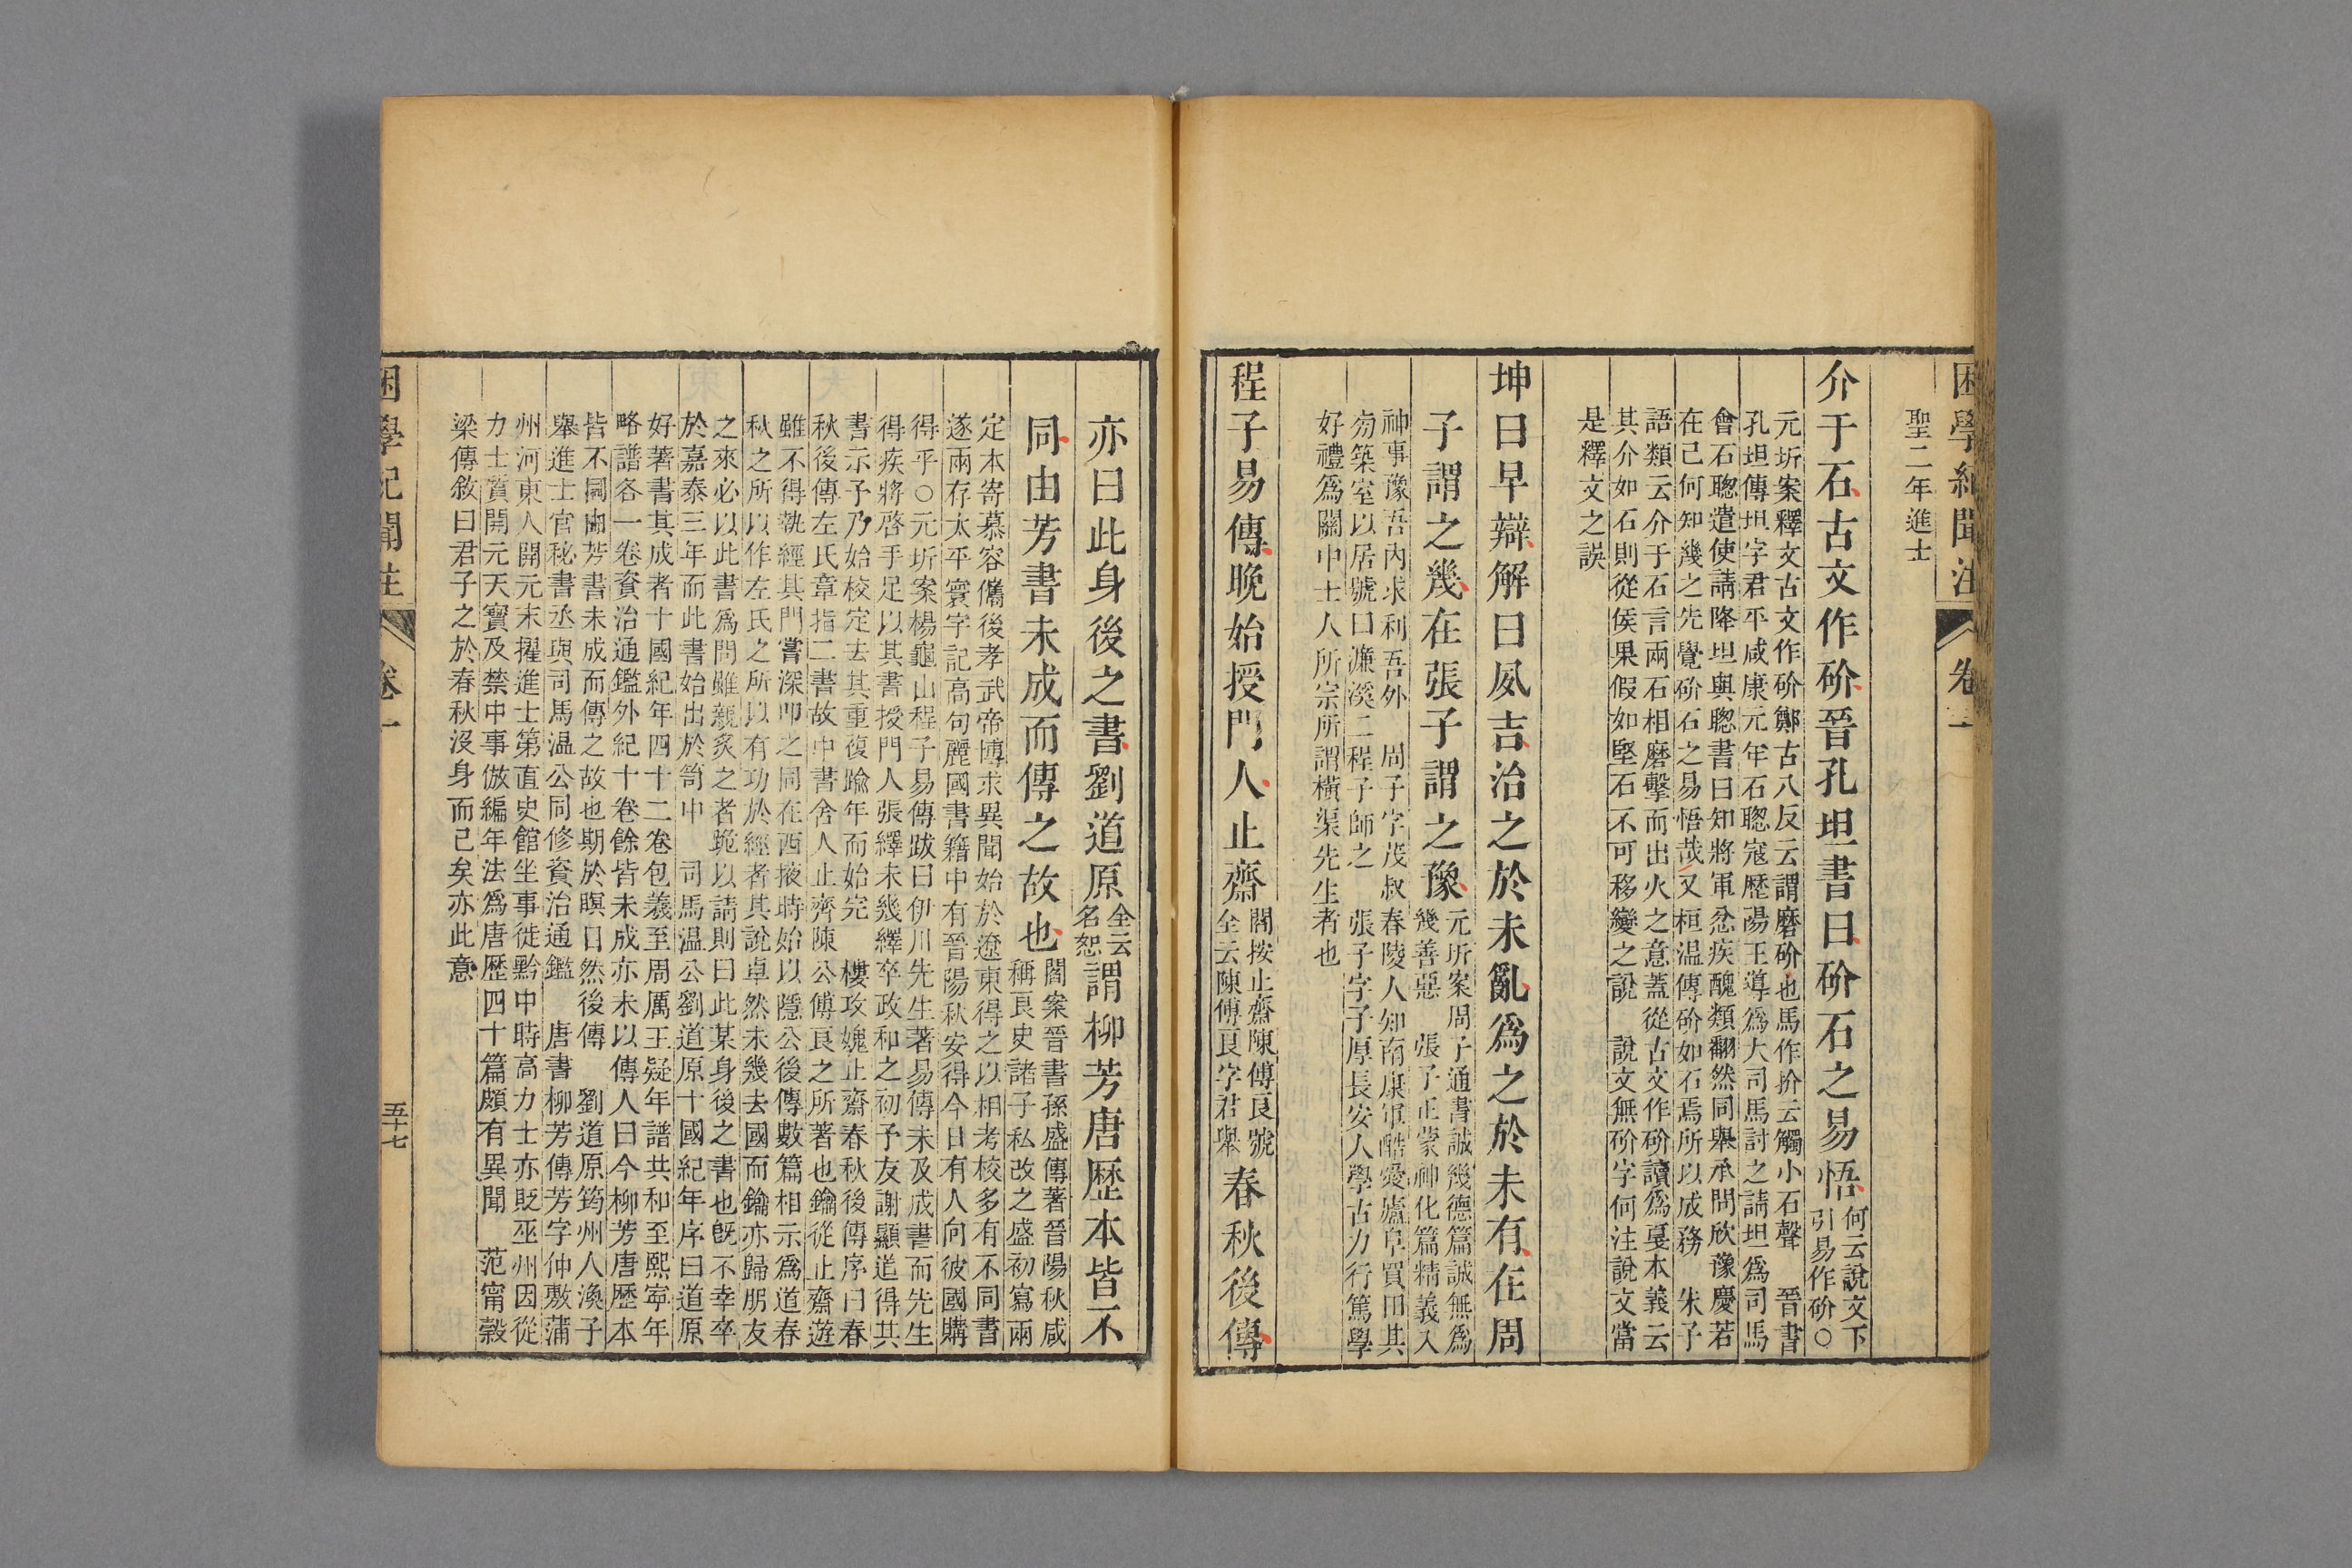 困學紀聞注 卷一
聖二年進士
介于石古文作砎晉孔坦書曰砎石之易悟何云說文下
引易作砎○
元圻案釋文古文作砎鄭古八反云謂磨砎也馬作扴云觸小石聲 晉書
孔坦傳坦字君平咸康元年石聰寇歷陽王導爲大司馬討之請坦爲司馬
會石聰遣使請降坦與聰書曰知將軍忿疾醜類翻然同舉承問欣豫慶若
在己何知幾之先覺砎石之易悟哉又桓温傳砎如石焉所以成務 朱子
語類云介于石言兩石相磨擊而出火之意蓋從古文作砎讀爲戛本義云
其介如石則從侯果假如堅石不可移變之說 說文無砎字何注說文當
是釋文之誤
坤曰早辯解曰夙吉治之於未亂爲之於未有在周
子謂之幾在張子謂之豫元圻案周子通書誠幾德篇誠無爲
幾善惡 張子正蒙神化篇精義入
神事豫吾內求利吾外 周子字茂叔春陵人知南康軍酷愛廬阜買田其
旁築室以居號曰濂溪二程子師之 張子字子厚長安人學古力行篤學
好禮爲關中士人所宗所謂橫渠先生者也
程子易傳晚始授門人止齋閻按止齋陳傅良號
全云陳傅良字君舉春秋後傳
亦曰此身後之書劉道原全云
名恕謂柳芳唐歷本皆不
同由芳書未成而傳之故也閻案晉書孫盛傳著晉陽秋咸
稱良史諸子私改之盛初寫兩
定本寄慕容儁後孝武帝博求異聞始於遼東得之以相考校多有不同書
遂兩存太平寰宇記高句麗國書籍中有晉陽秋安得今日有人向彼國購
得乎○元圻案楊龜山程子易傳跋曰伊川先生著易傳未及成書而先生
得疾將啓手足以其書授門人張繹未幾繹卒政和之初予友謝顯道得其
書示予乃始校定去其重復踰年而始完 樓攻媿止齋春秋後傳序曰春
秋後傳左氏章指二書故中書舍人止齊陳公傅良之所著也鑰從止齋遊
雖不得執經其門嘗深叩之同在西掖時始以隱公後傳數篇相示爲道春
秋之所以作左氏之所以有功於經者其說卓然未幾去國而鑰亦歸朋友
之來必以此書爲問雖親炙之者跪以請則曰此某身後之書也旣不幸卒
於嘉泰三年而此書始出於笥中 司馬温公劉道原十國紀年序曰道原
好著書其成者十國紀年四十二卷包羲至周厲王疑年譜共和至熙寧年
略譜各一卷資治通鑑外紀十卷餘皆未成亦未以傳人曰今柳芳唐歷本
皆不同由芳書未成而傳之故也期於瞑目然後傳 劉道原筠州人渙子
舉進士官秘書丞與司馬温公同修資治通鑑 唐書柳芳傳芳字仲敷蒲
州河東人開元末擢進士第直史館坐事徙黔中時高力士亦貶巫州因從
力士質開元天寶及禁中事倣編年法爲唐歷四十篇頗有異聞 范甯穀
梁傳敘曰君子之於春秋沒身而已矣亦此意
困學紀聞注 卷一 五十七